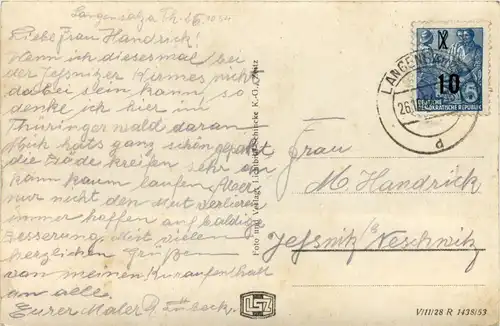 Langensalza Th. 1954
Liebe Frau Handrick!
Wenn ich diesesmal bei
der Jeßnitzer Kirmes nicht
dabei sein kann, so
denke ich hier im
Thüringer wald daran
Mich hats ganz schön gepakt
die Bäder kreifen sehr an
kann kaum laufen, Aber
nur nicht den Mut verlieren
immer hoffen auf baldige
Besserung. Mit vielen
herzlichen Grüßen
von meinen Kuraufenthalt
an alle.
Eurer Maler P.
Foto und Verlag: Lichtbild K.-G.
LANGEN
X
10
DEUTSCHE
DEMOKRATISCHE REPUBLIK
d
Frau
M Handrick
Jessnitz b/ Neschwitz
V/11/28 R 1438/53